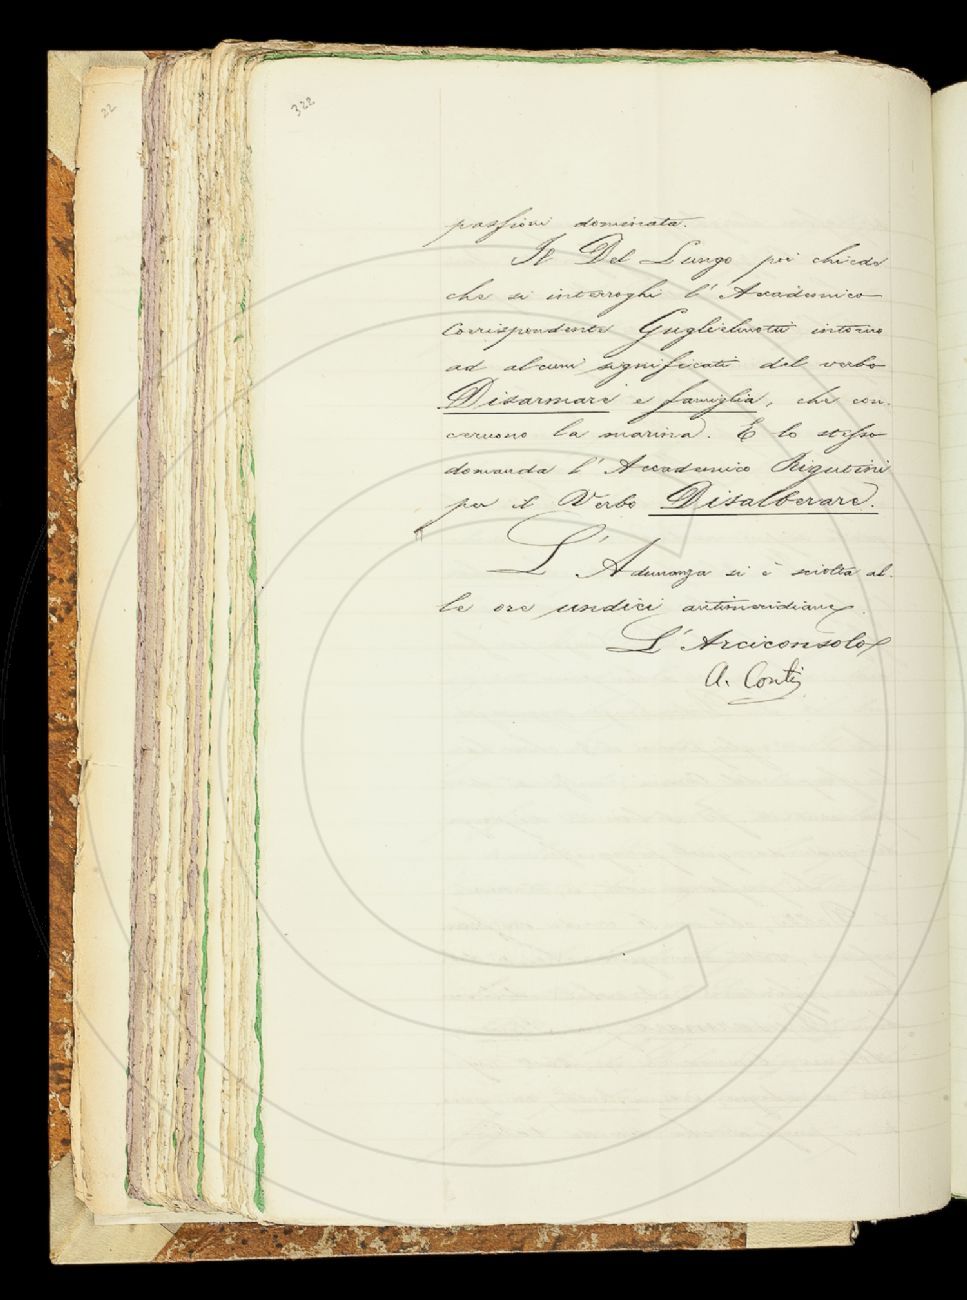 22
322
passioni dominata.
Il Del Lungo poi chiede
che si interroghi l'Accademico
Corrispondente Guglielmotti intorno
ad alcuni significati del verbo
Disarmare e famiglia, che con-
cernono la marina. E lo stesso
domanda l'Accademico Rigutini
per il Verbo Disalberare.
L'Adunanza si è sciolta al-
le ore undici antimeridiane.
L'Arciconsolo
A. Conti